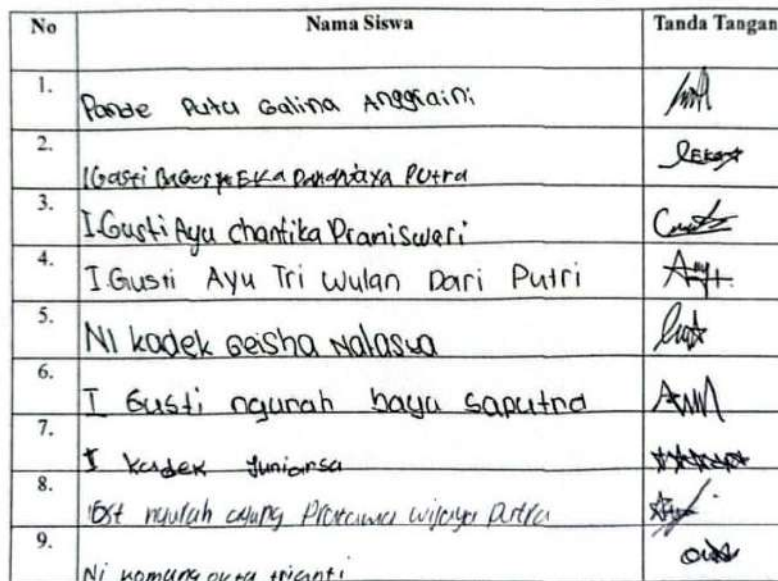 No Nama Siswa Tanda Tangan
1. Pande Putu Galina Anggraini
2. I Gusti Bagus Eka Putra
3. I Gusti Ayu Chantika Praniswari
4. I Gusti Ayu Tri Wulan Dari Putri
5. Ni kadek Geisha Natasya
6. I Gusti ngurah bayu saputra
7. I kadek Juniarsa
8. Gst ngurah agung Pratama wijaya putra
9. Ni komang trianti